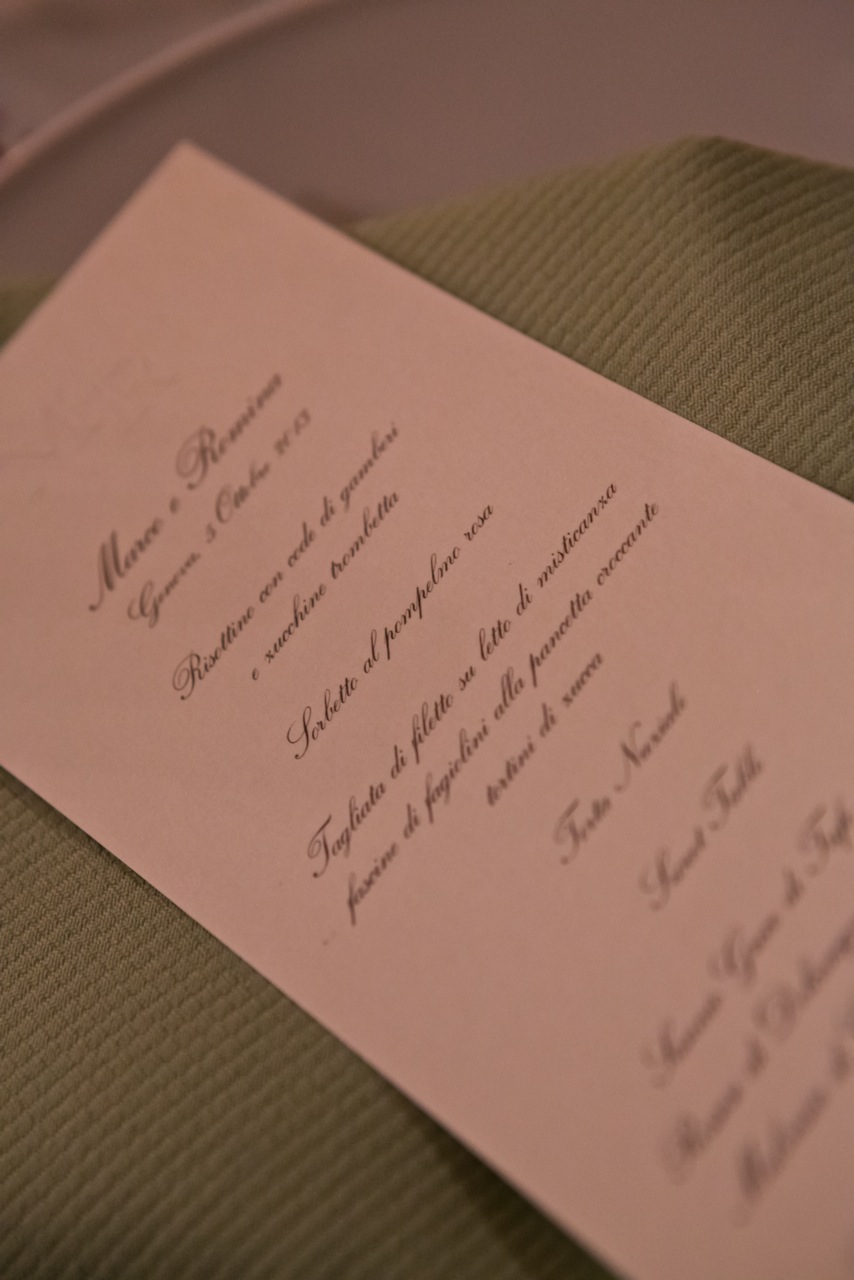 Marco e Romina
Genova, 5 Ottobre 2013
Risottino con code di gamberi
e zucchine trombetta
Sorbetto al pompelmo rosa
Tagliata di filetto su letto di misticanza
fascine di fagiolini alla pancetta croccante
tortini di zucca
Torta Nuziale
Sweet Table
di
di